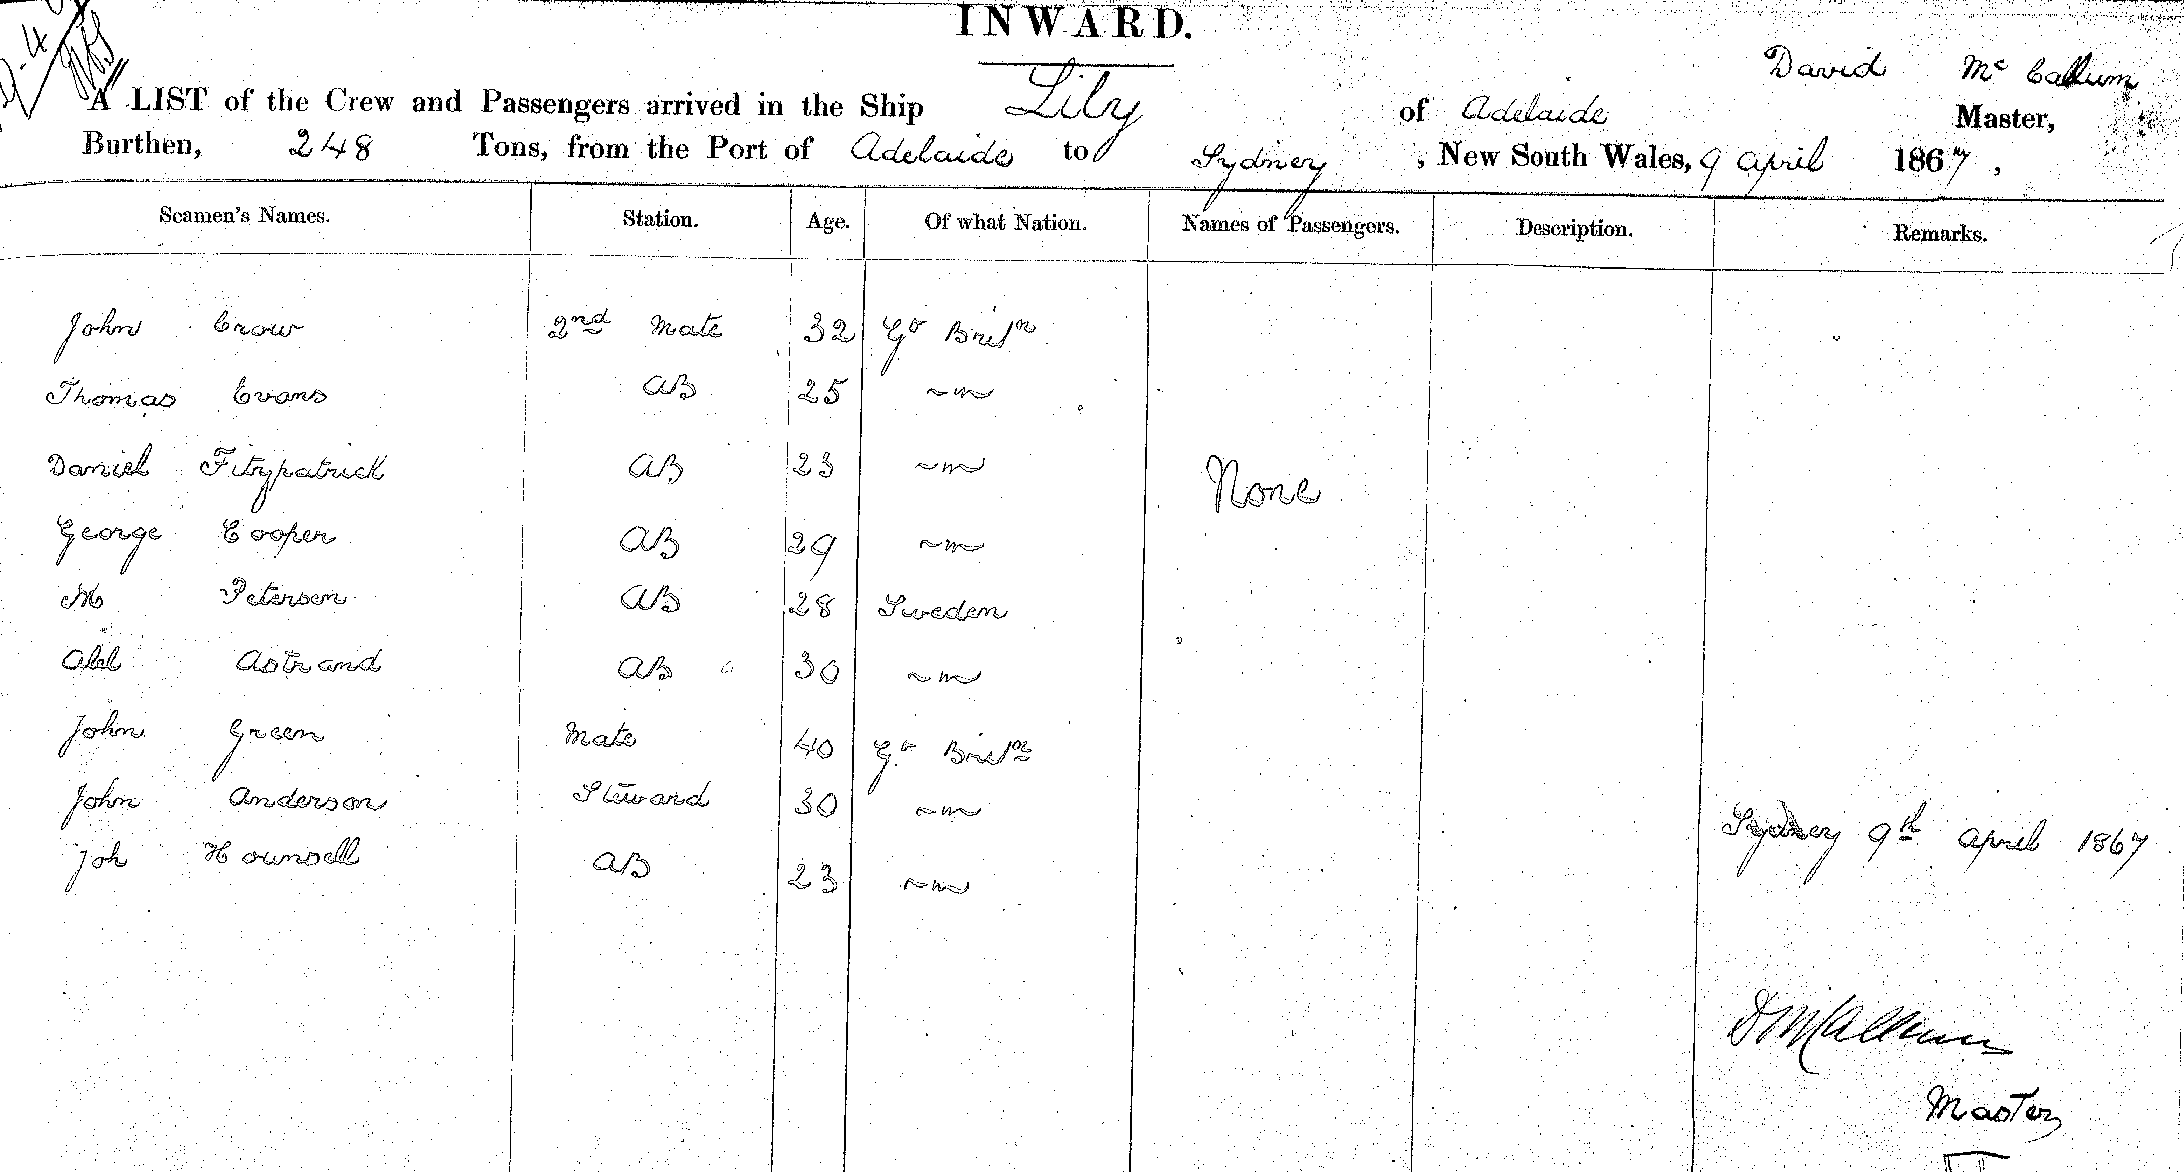 INWARD.
David Mc Callum
A LIST of the Crew and Passengers arrived in the Ship Lily of Adelaide Master,
Burthen, 248 Tons, from the Port of Adelaide to Sydney, New South Wales, 9 April 1867,
Seamen's Names. Station. Age. Of what Nation. Names of Passengers. Description. Remarks.
John Crow 2nd Mate 32 Gt Britn
Thomas Evans AB 25 "
Daniel Fitzpatrick AB 23 "
None
George Cooper AB 29 "
M Petersen AB 28 Sweden
Abl Astrand AB 30 "
John Green Mate 40 Gt Britn
John Anderson Steward 30 "
Sydney 9th April 1867
Joh Hounsell AB 23 "
D McCallum
Master